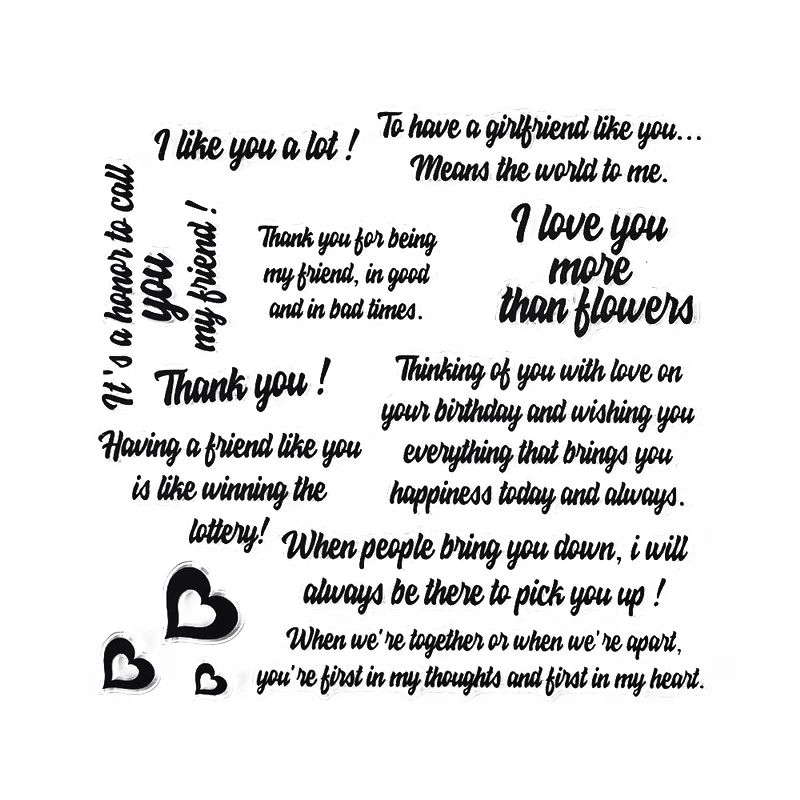 I like you a lot !
To have a girlfriend like you...
Means the world to me.
It's a honor to call
you
my friend !
Thank you for being
my friend, in good
and in bad times.
I love you
more
than flowers
Thank you !
Thinking of you with love on
your birthday and wishing you
everything that brings you
happiness today and always.
Having a friend like you
is like winning the
lottery!
When people bring you down, i will
always be there to pick you up !
When we're together or when we're apart,
you're first in my thoughts and first in my heart.